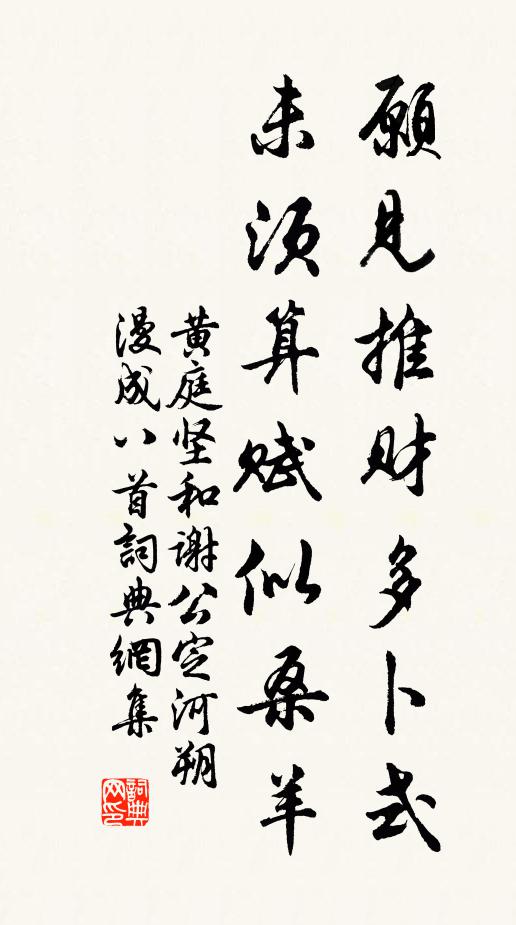 願見推财多卜式
未須算賦似桑羊
黄庭坚和谢公定河朔
漫成八首詞典網集
詞典網印